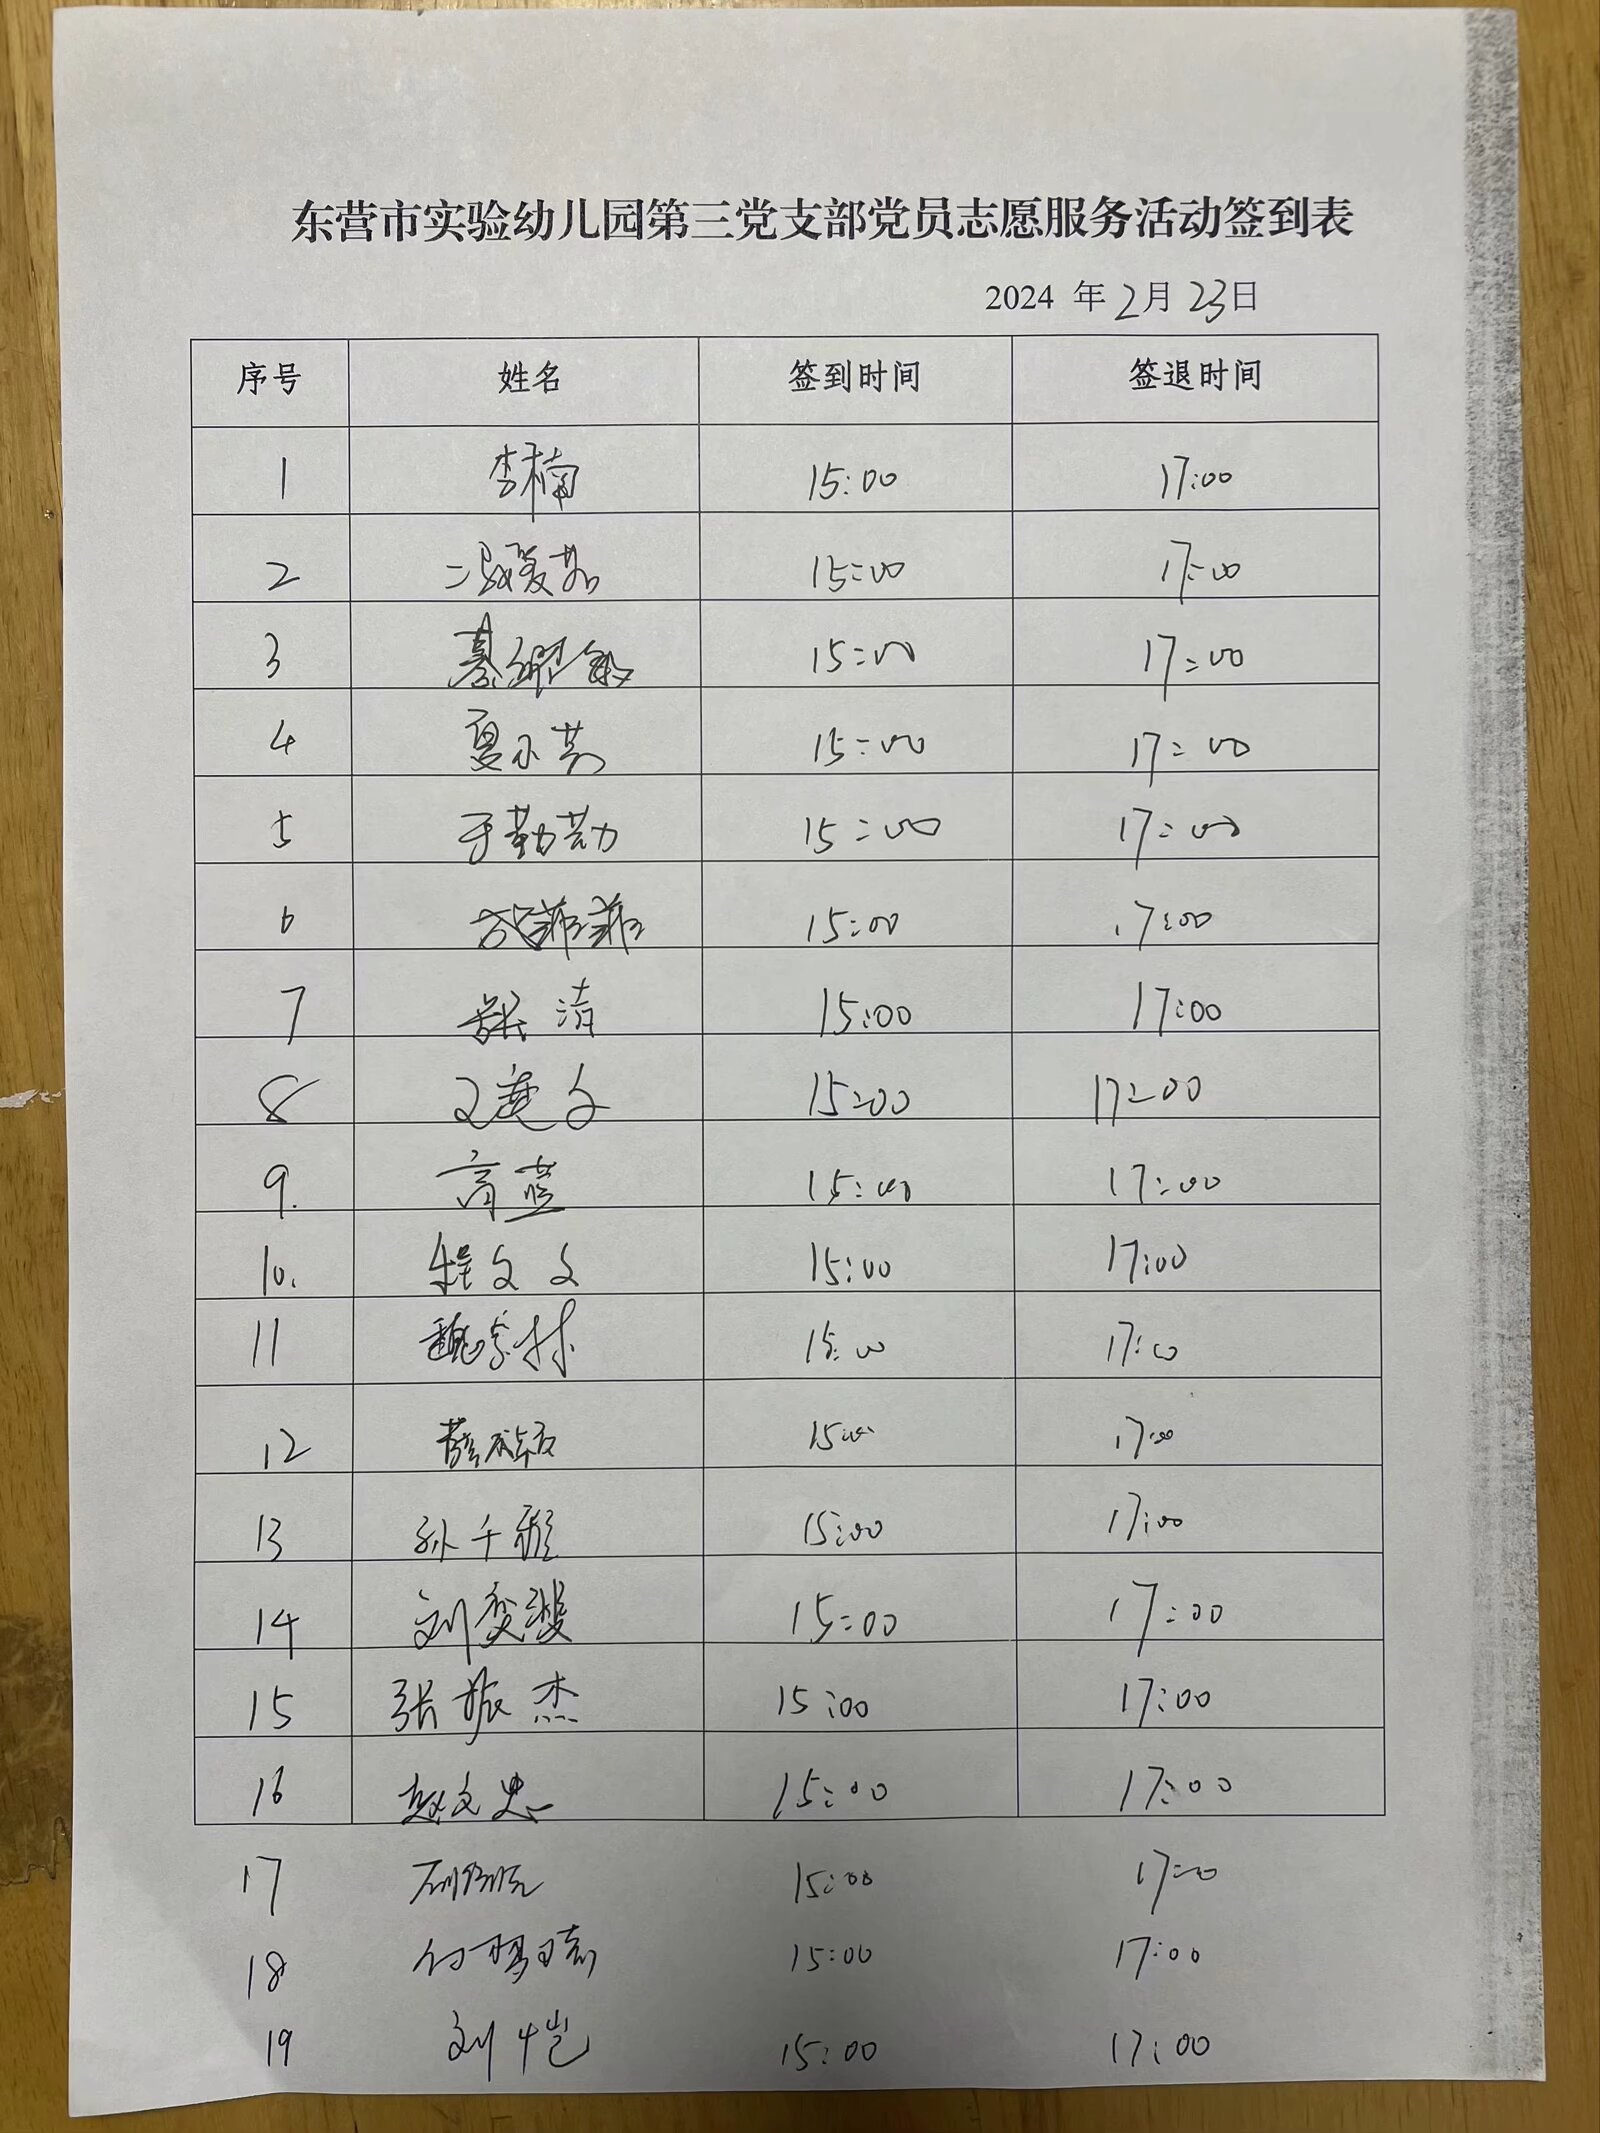 东营市实验幼儿园第三党支部党员志愿服务活动签到表
2024 年 2月 23日
序号 姓名 签到时间 签退时间
1 李楠 15:00 17:00
2 15:00 17:00
3 15:00 17:00
4 夏小芳 15:00 17:00
5 于勤勤 15:00 17:00
6 菲菲 15:00 17:00
7 清 15:00 17:00
8 15:00 17:00
9. 高蓝 15:00 17:00
10. 程文文 15:00 17:00
11 魏 林 15:00 17:00
12 薛 15:00 17:00
13 孙千雅 15:00 17:00
14 刘雯斐 15:00 17:00
15 张振杰 15:00 17:00
16 赵文忠 15:00 17:00
17 15:00 17:00
18 15:00 17:00
19 刘恺 15:00 17:00